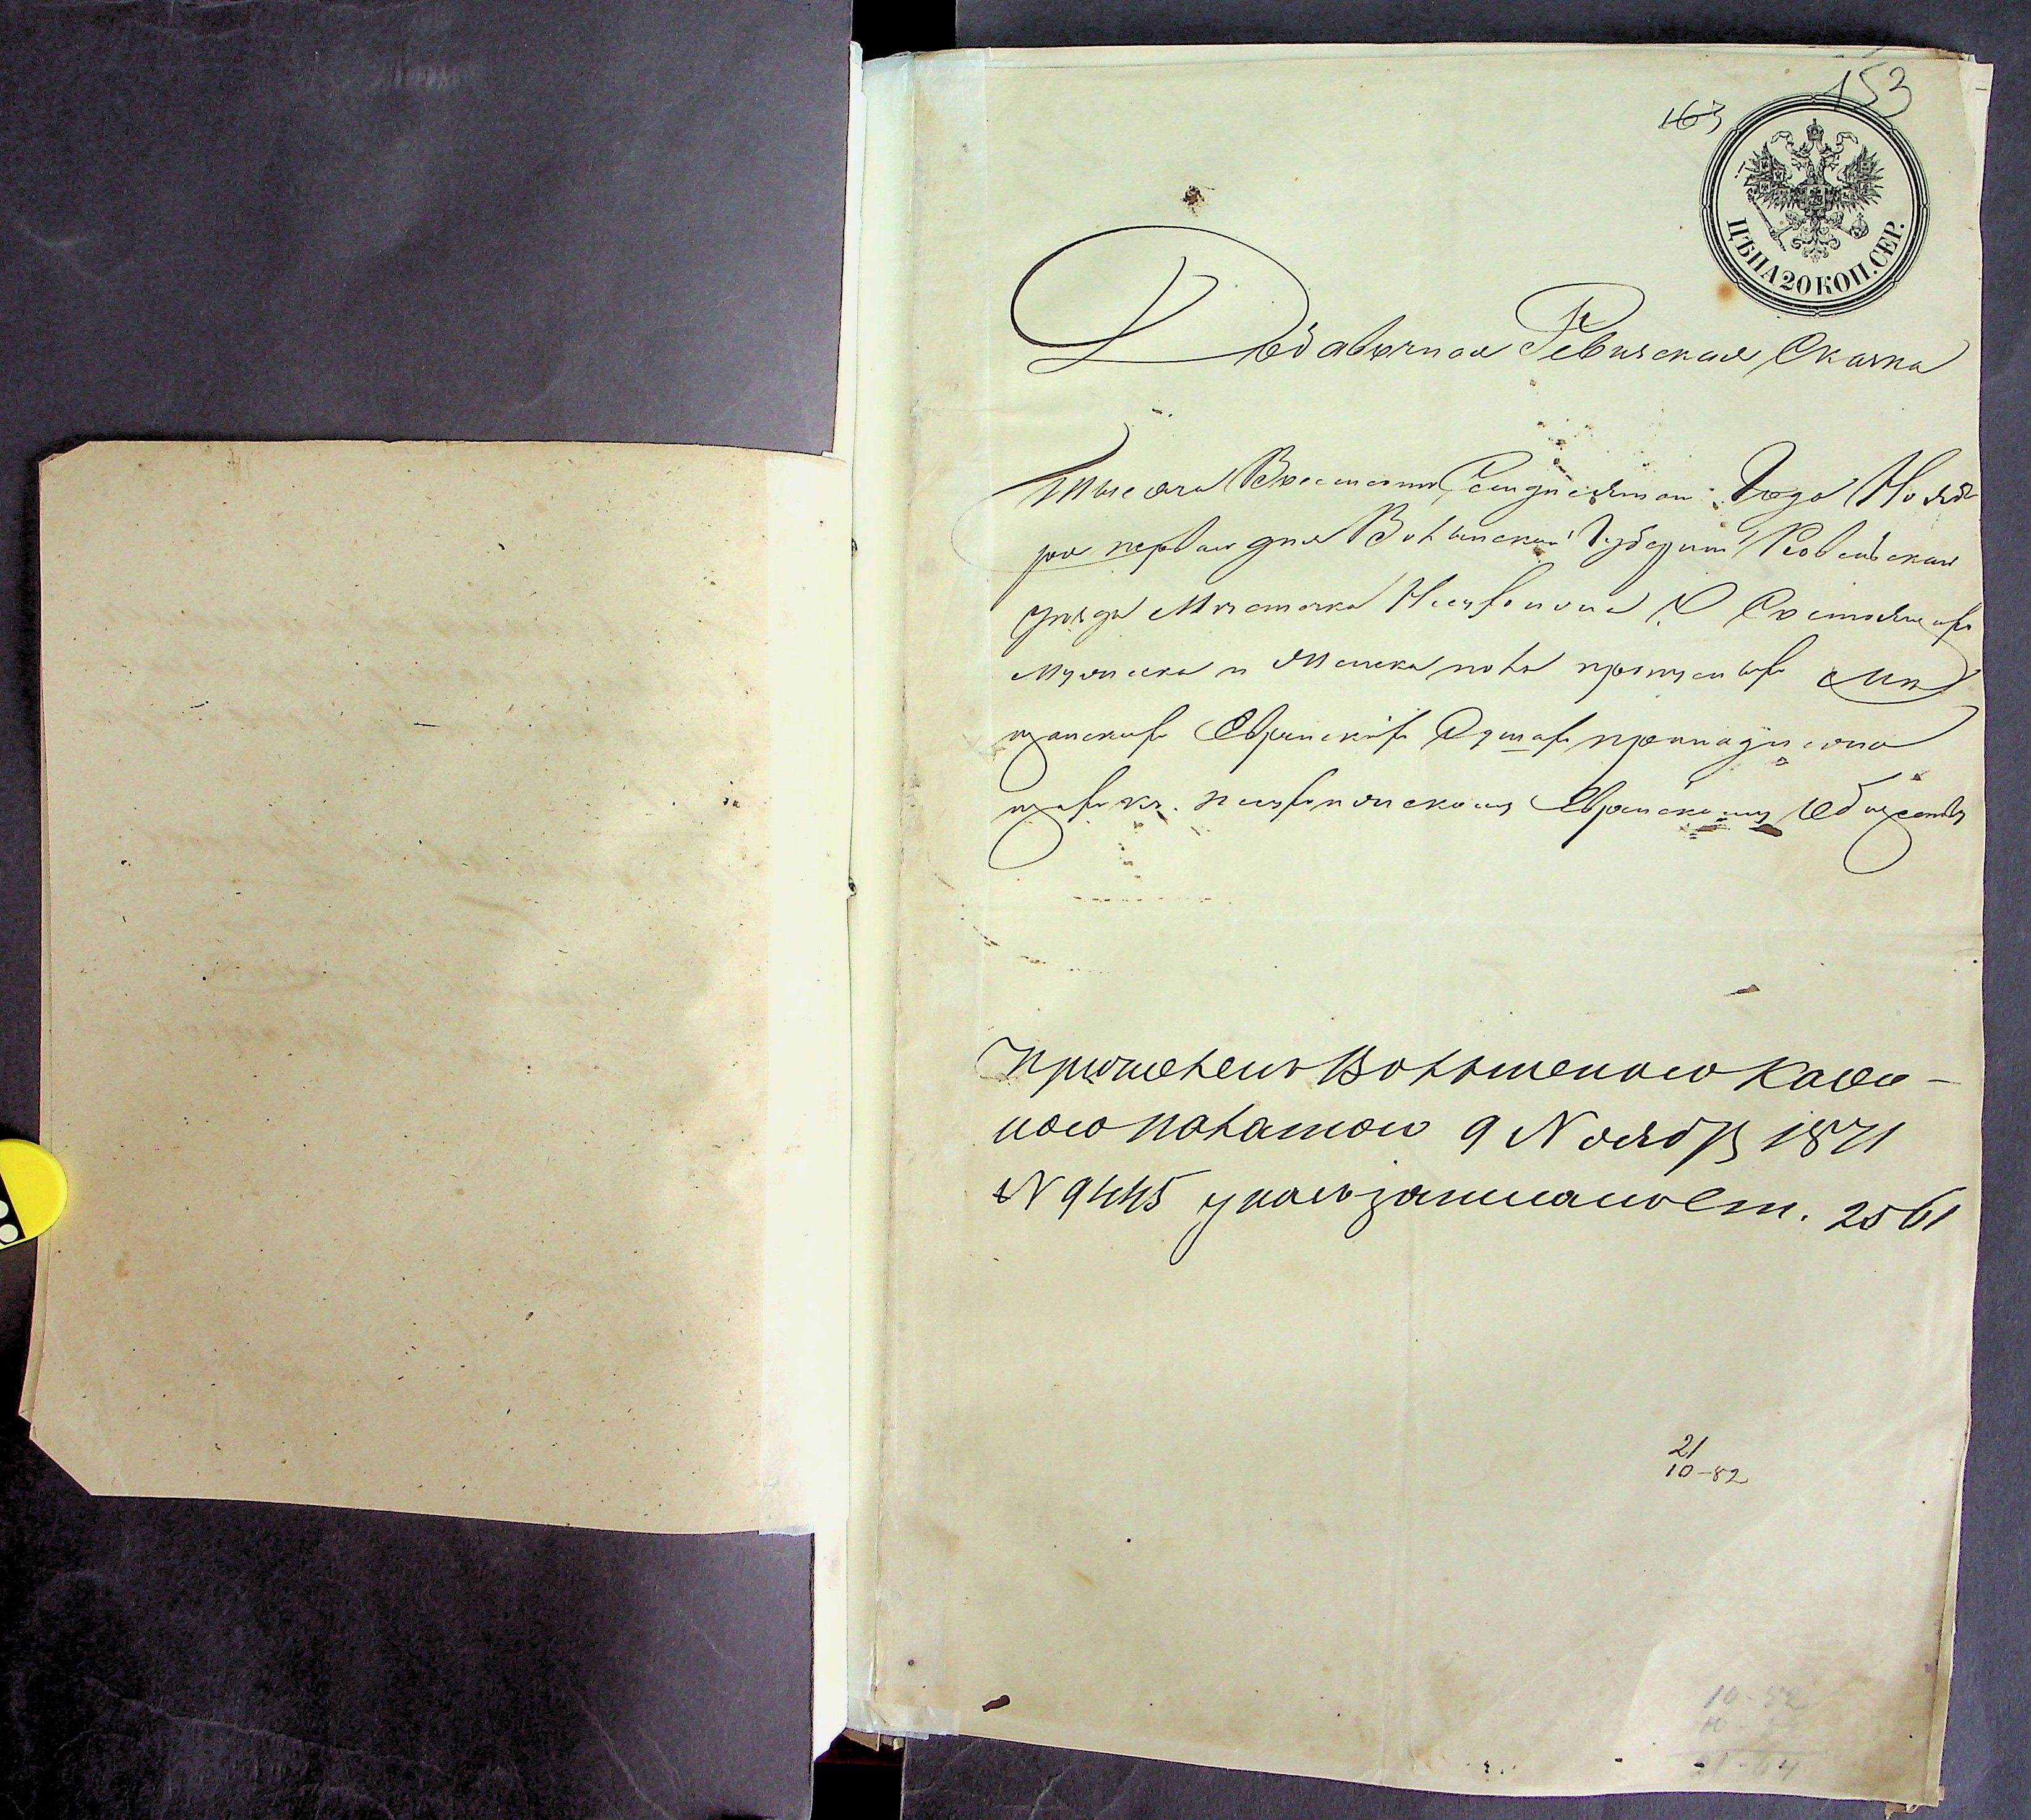 153
163
ЦѢНА 20 КОП. СЕР.
Добавочная Ревизская Сказка
Тысяча Восемьсотъ Семидесятаго Года Нояб
ря перваго дня Волынской Губерніи Ковельскаго
уѣзда Мѣстечка О Состоящихъ
Мужеска и Женска пола
щанскихъ Еврейскихъ Душахъ принадлежа
щихъ къ Еврейскому Обществу
Волынскою Казен-
ною Палатою 9 Ноября 1871
N 9445 ст. 2561
21
10-82